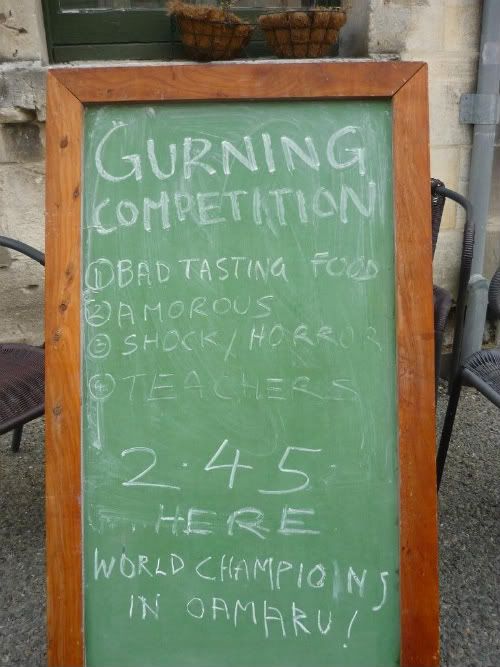 GURNING
COMPETITION
① BAD TASTING FOOD
② AMOROUS
③ SHOCK/HORROR
④ TEACHERS
2.45
HERE
WORLD CHAMPIONS
IN OAMARU!